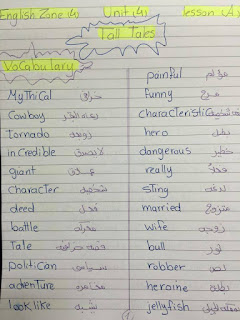 English Zone (4) Unit (4) lesson (1)
Tall Tales
Vocabulary
Mythical خرافى
Cowboy راعى البقر
tornado زوبعة
incredible لايصدق
giant عملاق
character شخصية
deed فعل
battle معركة
Tale قصة خرافية
politican سياسى
adventure مغامرة
look like يشبه
painful مؤلم
funny مرح
characteristic
hero بطل
dangerous خطير
really فعلاً
sting لدغة
married متزوج
wife زوجة
bull ثور
robber لص
heroine بطلة
jellyfish قنديل البحر